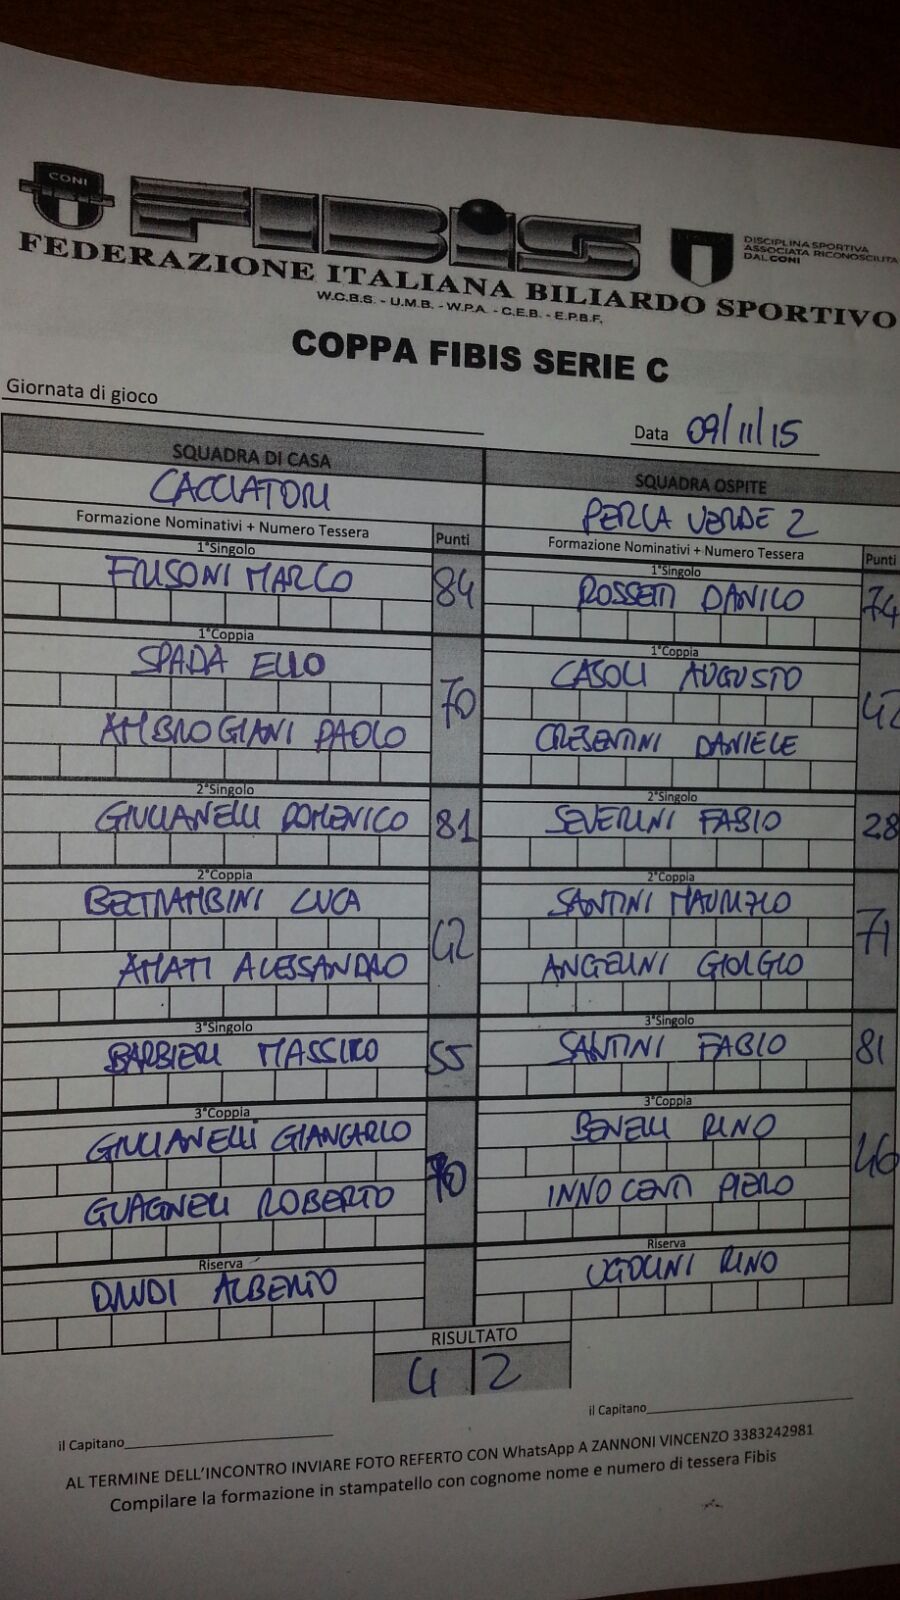 CONI
FIBiS
DISCIPLINA SPORTIVA
ASSOCIATA RICONOSCIUTA
DAL CONI
FEDERAZIONE ITALIANA BILIARDO SPORTIVO
W.C.B.S. - U.M.B. - W.P.A. - C.E.B. - E.P.B.F.
COPPA FIBIS SERIE C
Giornata di gioco
Data 09/11/15
SQUADRA DI CASA
CACCIATORI
Formazione Nominativi + Numero Tessera Punti
1°Singolo
FRISONI MARCO 84
1°Coppia
SPADA ELIO
70
AMBROGIANI PAOLO
2°Singolo
GIULIANELLI DOMENICO 81
2°Coppia
BELTRAMBINI LUCA
42
AMATI ALESSANDRO
3°Singolo
BARBIERI MASSIMO 55
3°Coppia
GIULIANELLI GIANCARLO
70
GUAGNELI ROBERTO
Riserva
DAUDI ALBERTO
SQUADRA OSPITE
PERLA VERDE 2
Formazione Nominativi + Numero Tessera Punti
1°Singolo
ROSSETTI DANILO 74
1°Coppia
CASOLI AUGUSTO
CRESENTINI DANIELE
2°Singolo
SEVERINI FABIO 28
2°Coppia
SANTINI MAURIZIO
71
ANGELINI GIORGIO
3°Singolo
SANTINI FABIO 81
3°Coppia
BENELLI RINO
46
INNOCENTI PIERO
Riserva
UGOLINI RINO
RISULTATO
4 2
il Capitano
il Capitano
AL TERMINE DELL'INCONTRO INVIARE FOTO REFERTO CON WhatsApp A ZANNONI VINCENZO 3383242981
Compilare la formazione in stampatello con cognome nome e numero di tessera Fibis